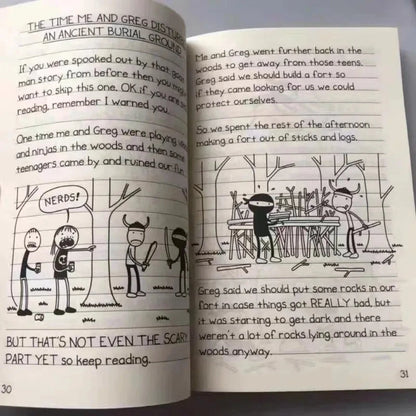 THE TIME ME AND GREG DISTUR
AN ANCIENT BURIAL GROUND
If you were spooked out by that goat
man story from before then you might
want to skip this one. OK if you are sti
reading, remember I warned you.
One time me and Greg were playing
and ninjas in the woods and then some
teenagers came by and ruined our fun.
NERDS!
BUT THAT'S NOT EVEN THE SCARY
PART YET so keep reading.
30
Me and Greg went further back in the
woods to get away from those teens.
Greg said we should build a fort so
if they came looking for us we could
protect ourselves.
So we spent the rest of the afternoon
making a fort out of sticks and logs.
Greg said we should put some rocks in our
fort in case things got REALLY bad, but
it was starting to get dark and there
weren't a lot of rocks lying around in the
woods anyway.
31